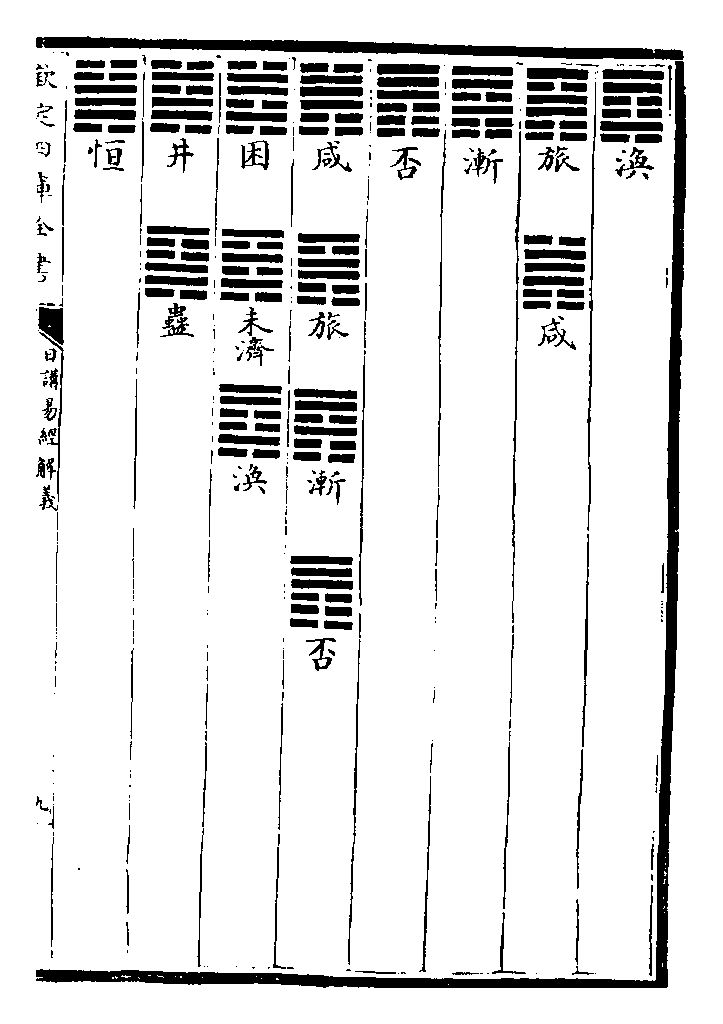 渙
旅 咸
漸
否
咸 旅 漸 否
困 未濟 渙
井 蠱
恒
欽定四庫全書
日講易經解義
九